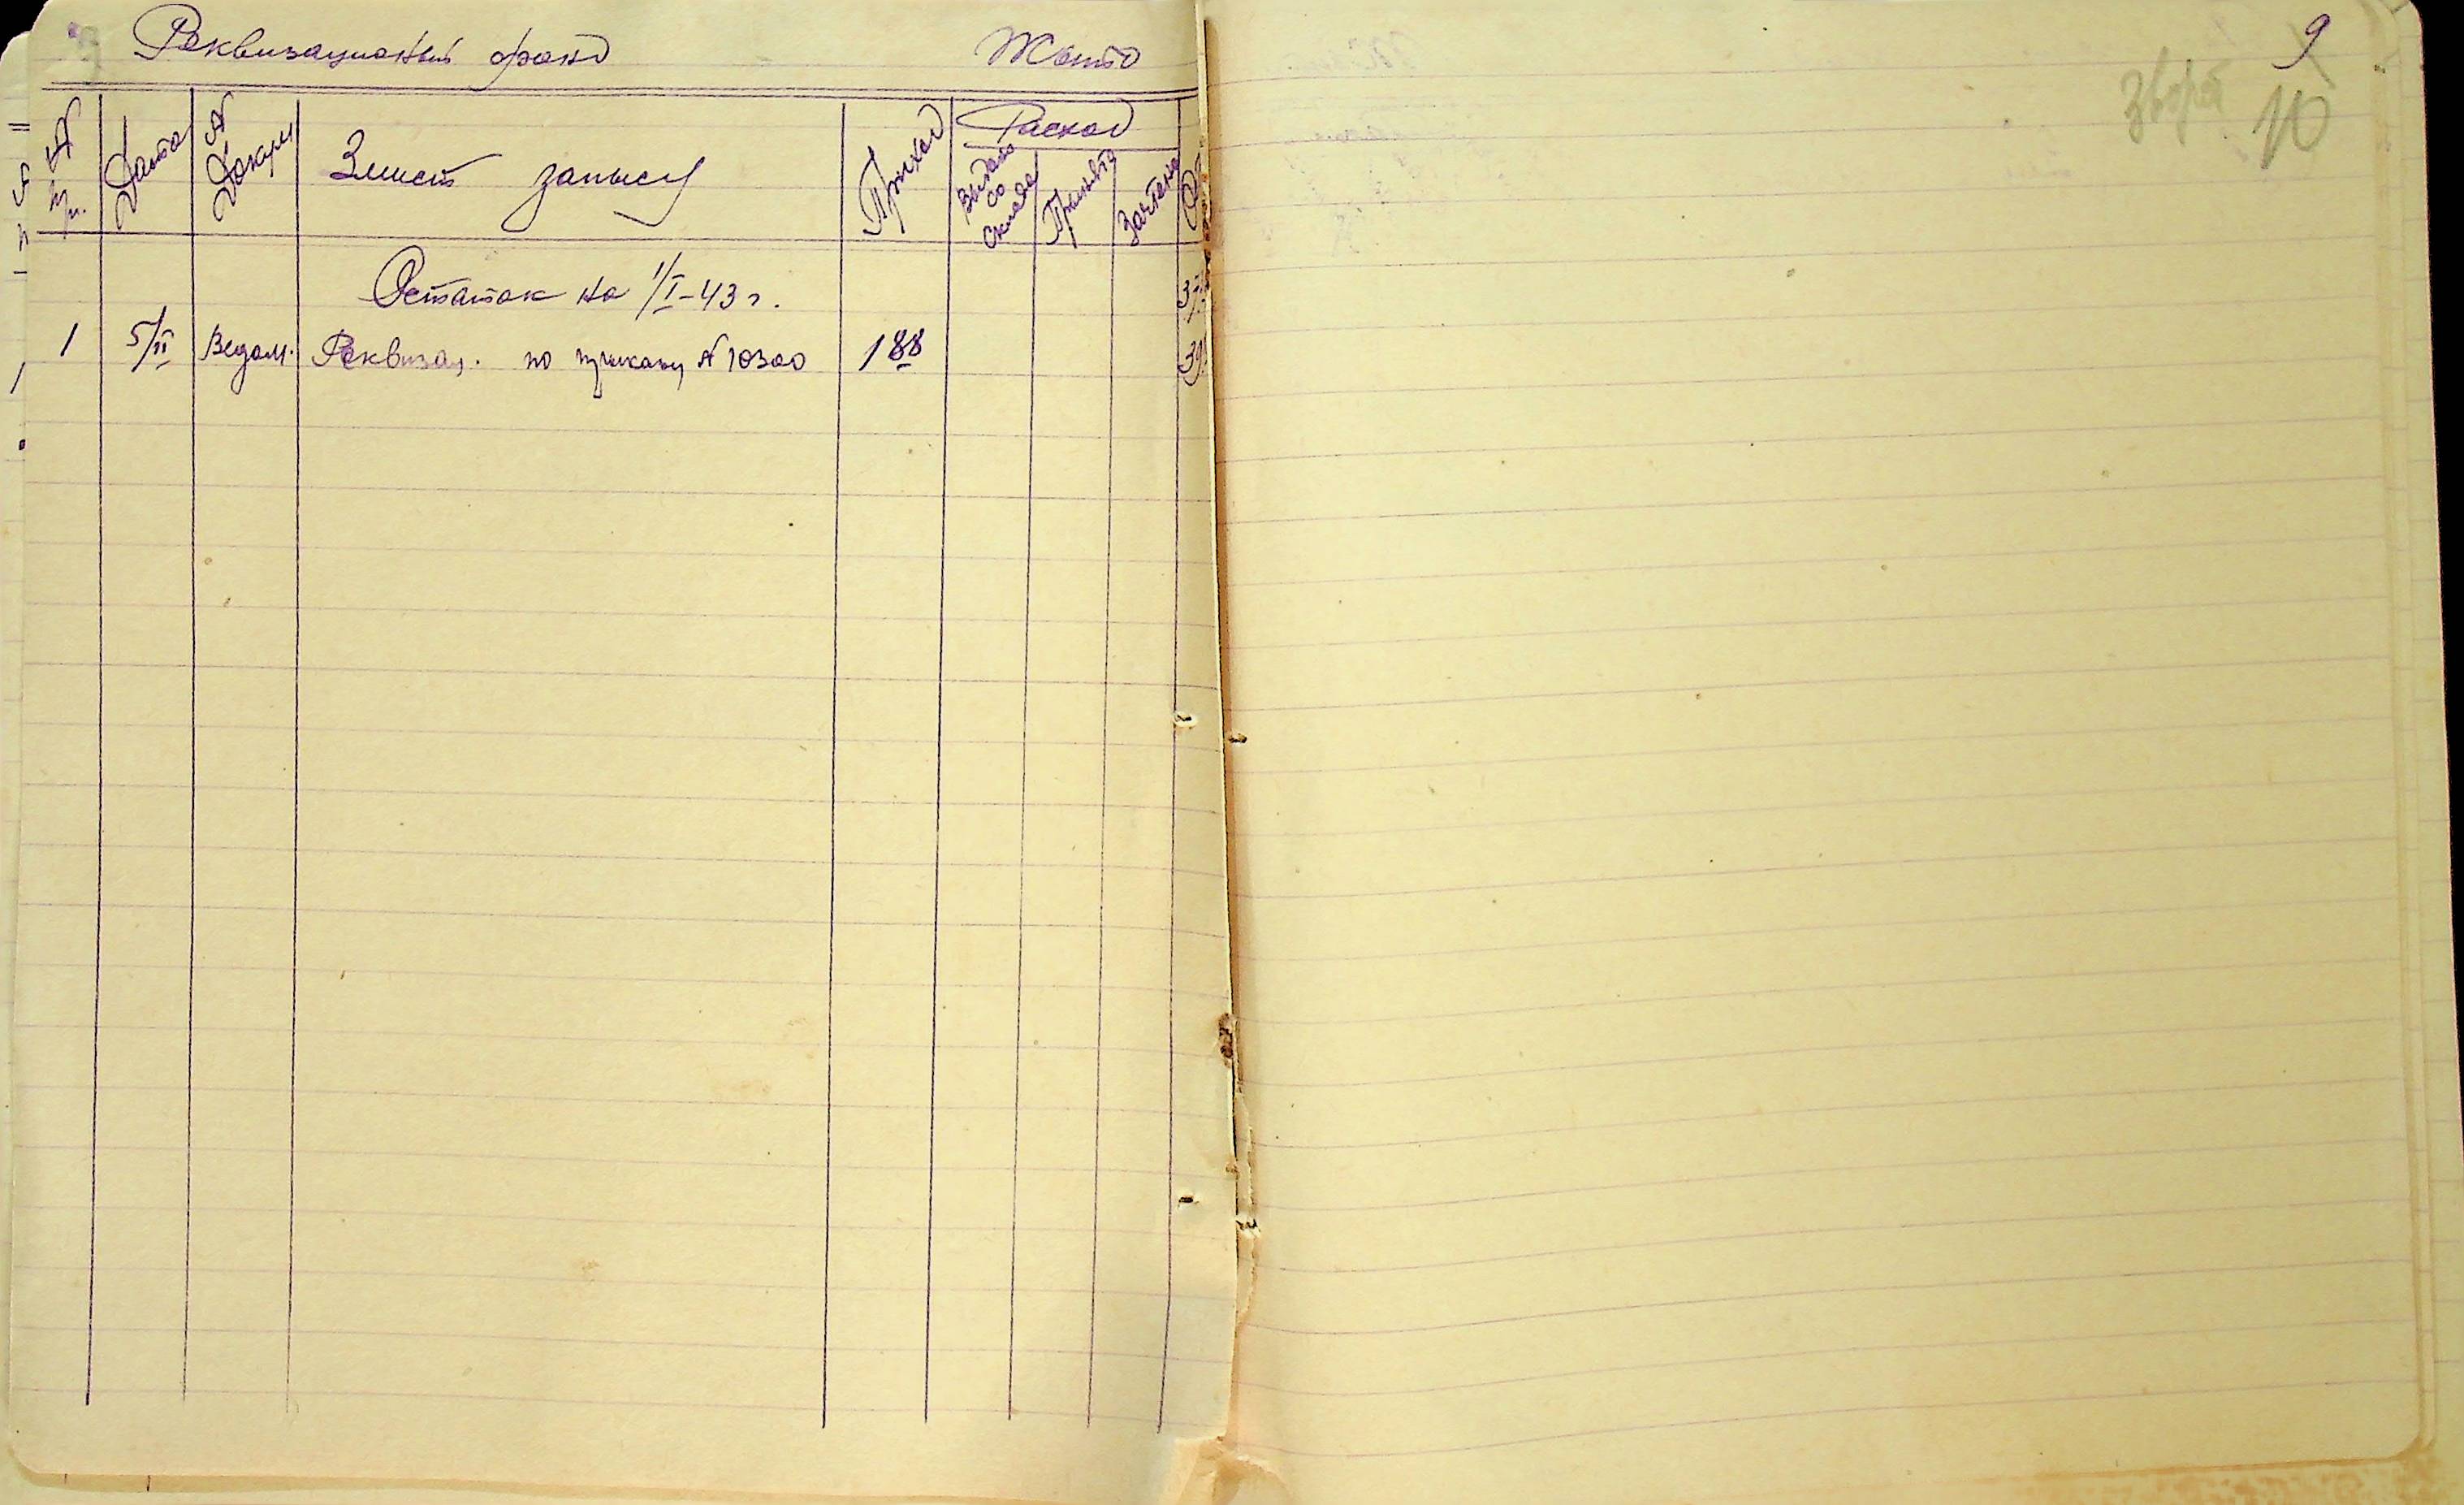 Реквизационный фонд Жито
№ пп. Дата № Докум Зміст запысу Прыход Расход
Выдано со склада Прынято Зачтено
Остаток на 1/I-43 г.
1 5/II Ведом. Реквизац. по прыказу № 10300 188
9
зворот 10